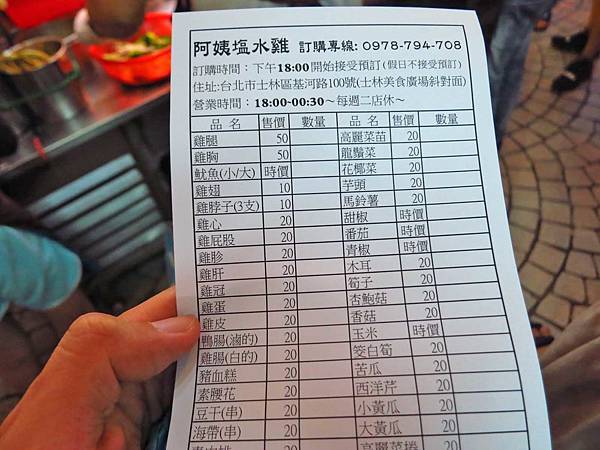 阿姨塩水雞 訂購專線: 0978-794-708
訂購時間：下午18:00開始接受預訂(假日不接受預訂)
住址:台北市士林區基河路100號(士林美食廣場斜對面)
營業時間：18:00-00:30～每週二店休～
品 名 售價 數量 品 名 售價 數量
雞腿 50 高麗菜苗 20
雞胸 50 龍鬚菜 20
魷魚(小/大) 時價 花椰菜 20
雞翅 10 芋頭 20
雞脖子(3支) 10 馬鈴薯 20
雞心 20 甜椒 時價
雞屁股 20 番茄 時價
雞胗 20 青椒 時價
雞肝 20 木耳 20
雞冠 20 筍子 20
雞蛋 20 杏鮑菇 20
雞皮 20 香菇 20
鴨腸(滷的) 20 玉米 時價
雞腸(白的) 20 筊白筍 20
豬血糕 20 苦瓜 20
素腰花 20 西洋芹 20
豆干(串) 20 小黃瓜 20
海帶(串) 20 大黃瓜 20
20 高麗菜捲 20